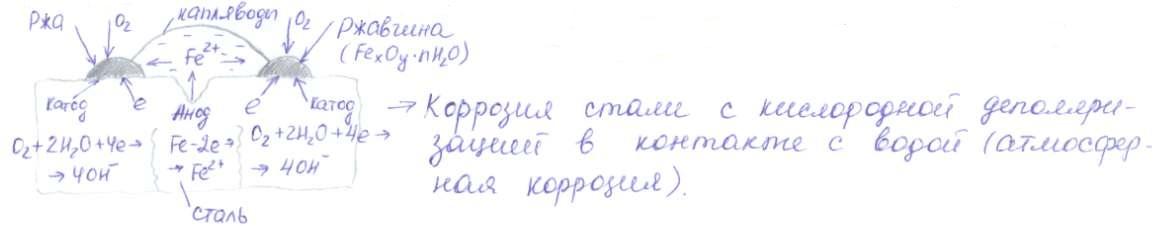 Ржа
O₂
капля воды
O₂
Ржавчина
(FeₓOᵧ·nH₂O)
Fe²⁺
катод
e
Анод
e
катод
O₂+2H₂O+4e→
→ 4OH⁻
Fe-2e→
→ Fe²⁺
O₂+2H₂O+4e→
→ 4OH⁻
сталь
→ Коррозия стали с кислородной деполяри-
зацией в контакте с водой (атмосфер-
ная коррозия).